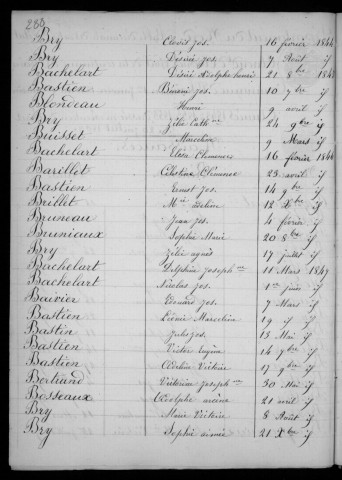 283
Bry Clovis Jos. 16 février 1844
Bry Désiré Jos. 7 Août if
Bachelart Désiré Adolphe 21 8bre 184
Bastien Bénoni Jos. 10 7bre if
Blondeau Henri 9 avril if
Bry Zélie Cath.ne 24 9bre if
Buisset Marceline 9 Mars if
Bachelart Elvia Clémence 16 février 1846
Barillet Célestine Clémence 23 avril if
Bastien Ernest Jos. 14 9bre if
Brillet M.ie Adeline 12 Xbre if
Bruneau Jean Jos. 4 février if
Brunieaux Sophie Marie 20 8bre if
Bry Zélie agnès 17 juillet if
Bachelart Delphine Joseph.ne 11 Mars 1847
Bachelart Nicolas Jos. 1er juin if
Bavier Edouard Jos. 7 Mars if
Bastien Léonie Marceline 19 if if
Bastin Jules Jos. 13 Mai if
Bastien Victor Eugène 14 7bre if
Bastien Adeline Victoire 17 9bre if
Bertrand Victorine Joseph.ne 30 Mai if
Bosseaux Adolphe arsène 21 avril if
Bry Marie Victoire 8 Août if
Bry Sophie aimée 21 Xbre if